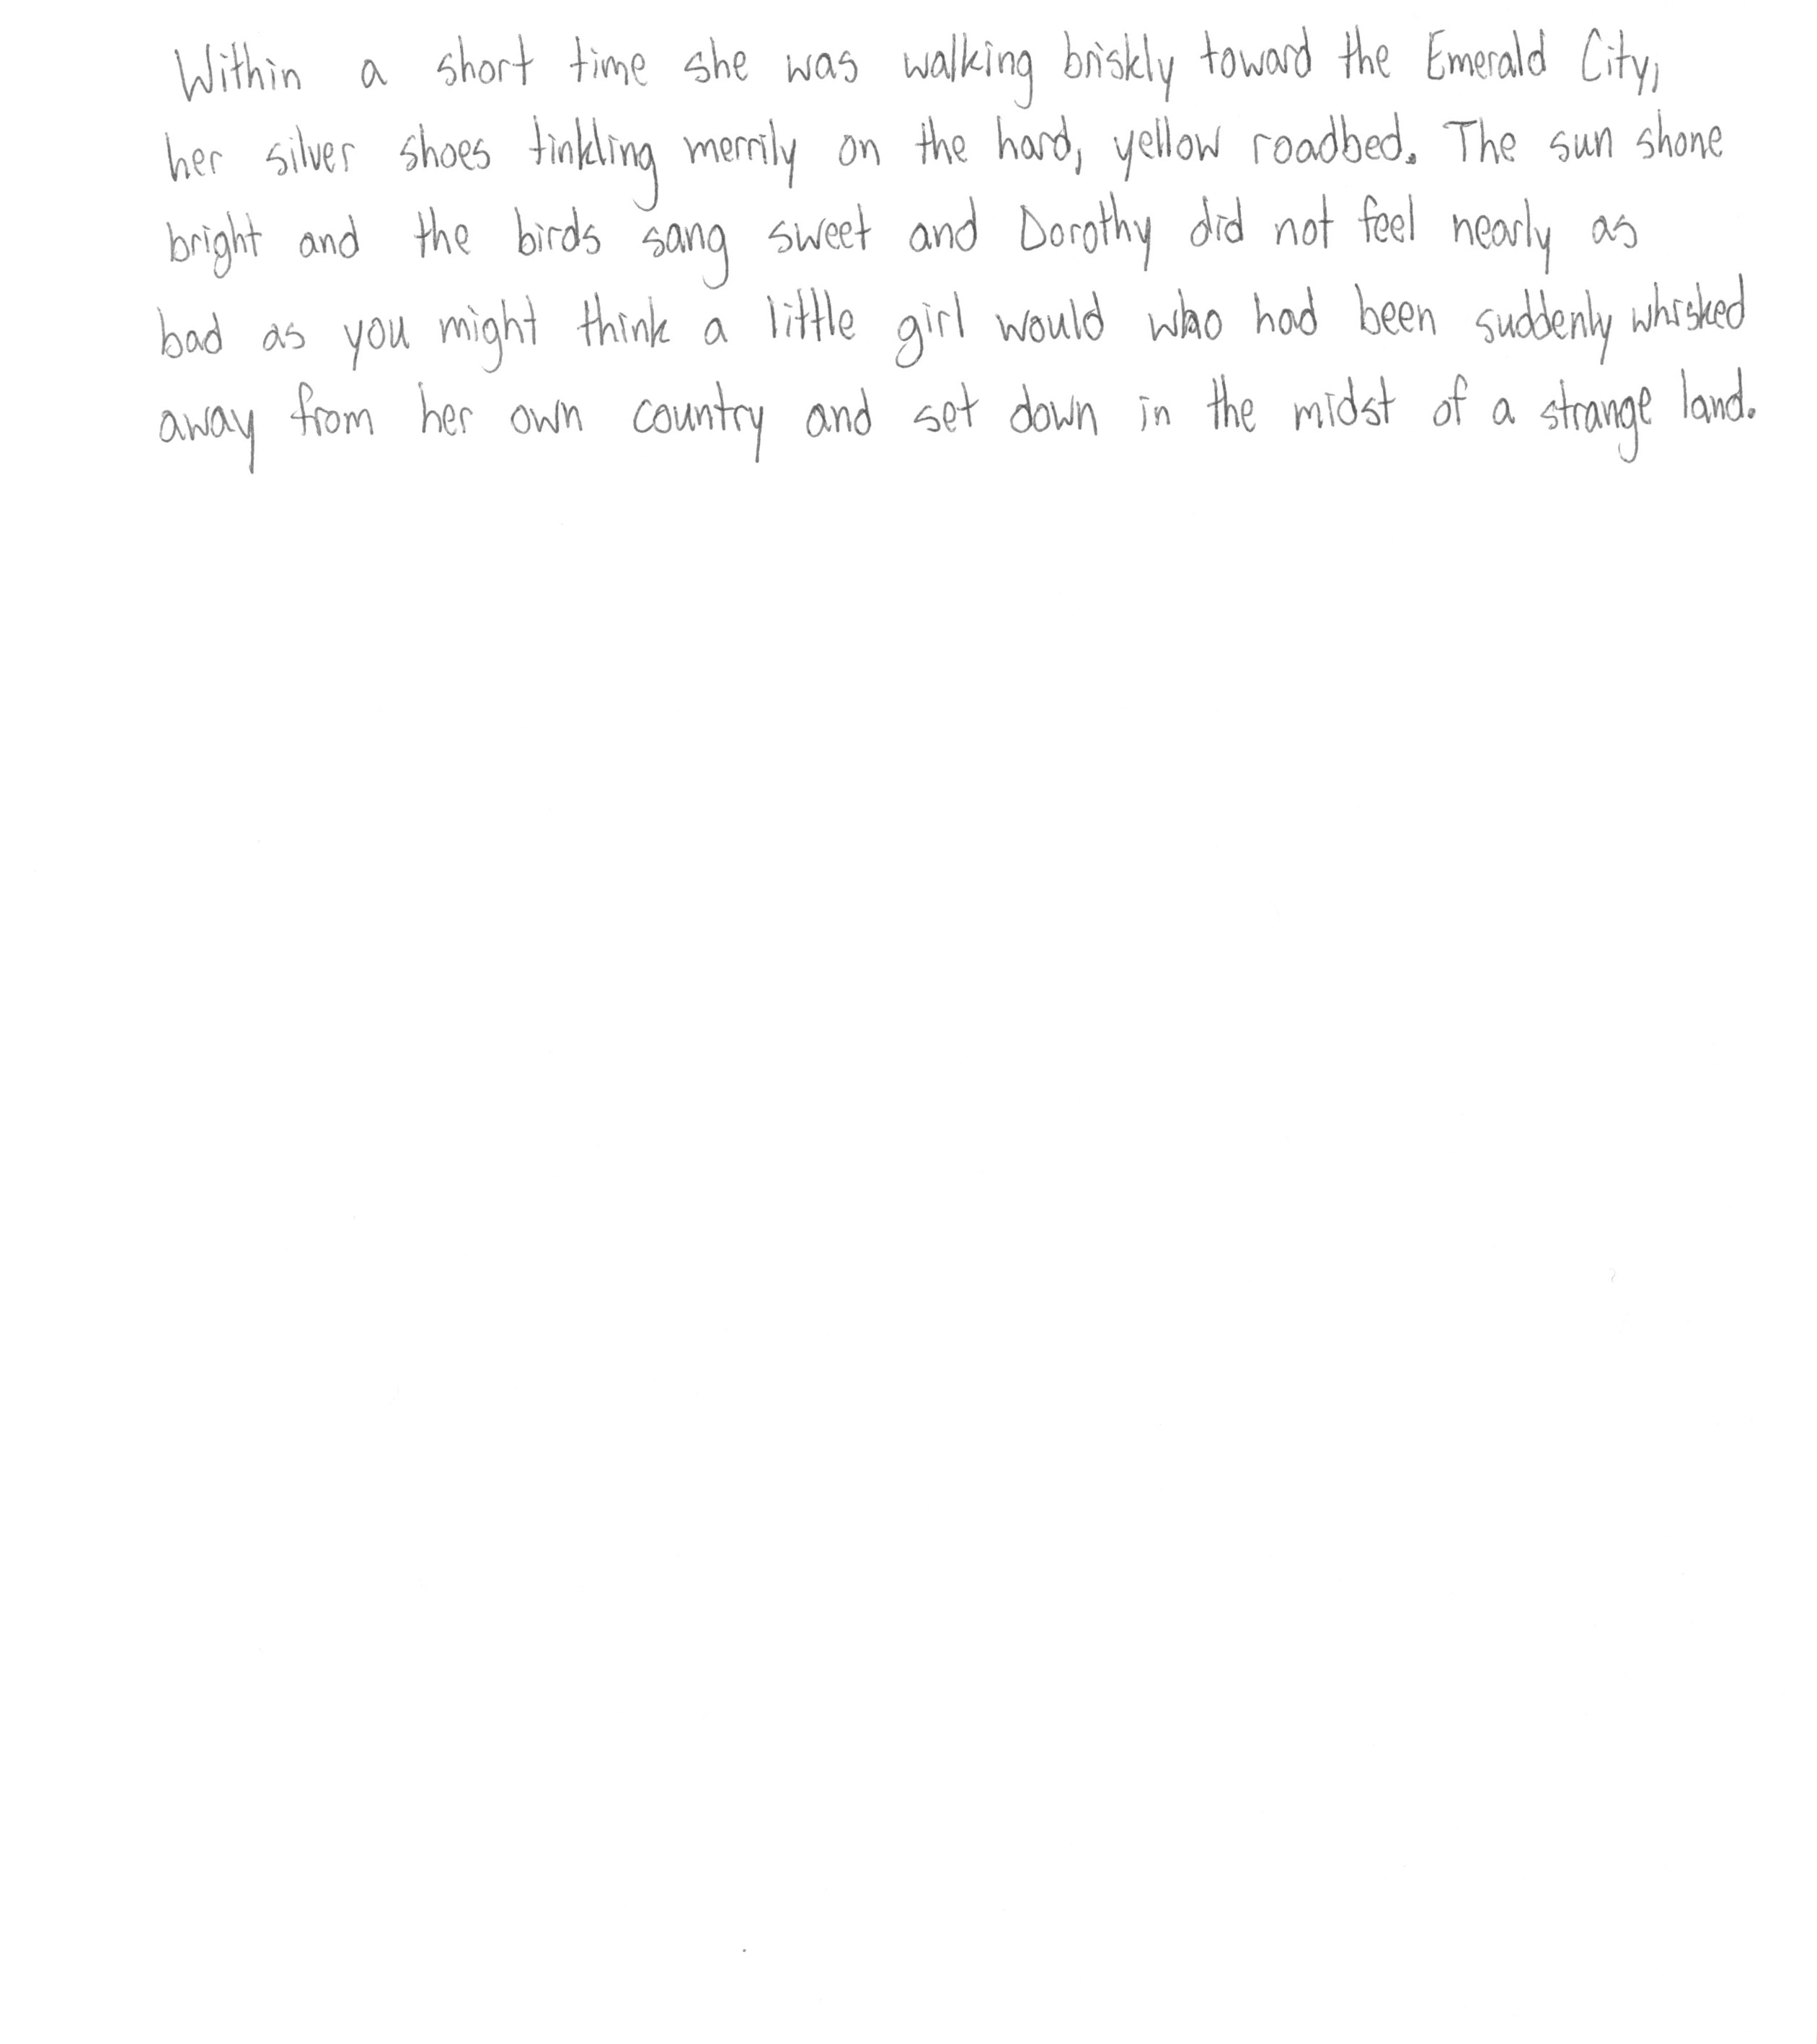 Within a short time she was walking briskly toward the Emerald City,
her silver shoes tinkling merrily on the hard, yellow roadbed. The sun shone
bright and the birds sang sweet and Dorothy did not feel nearly as
bad as you might think a little girl would who had been suddenly whisked
away from her own country and set down in the midst of a strange land.